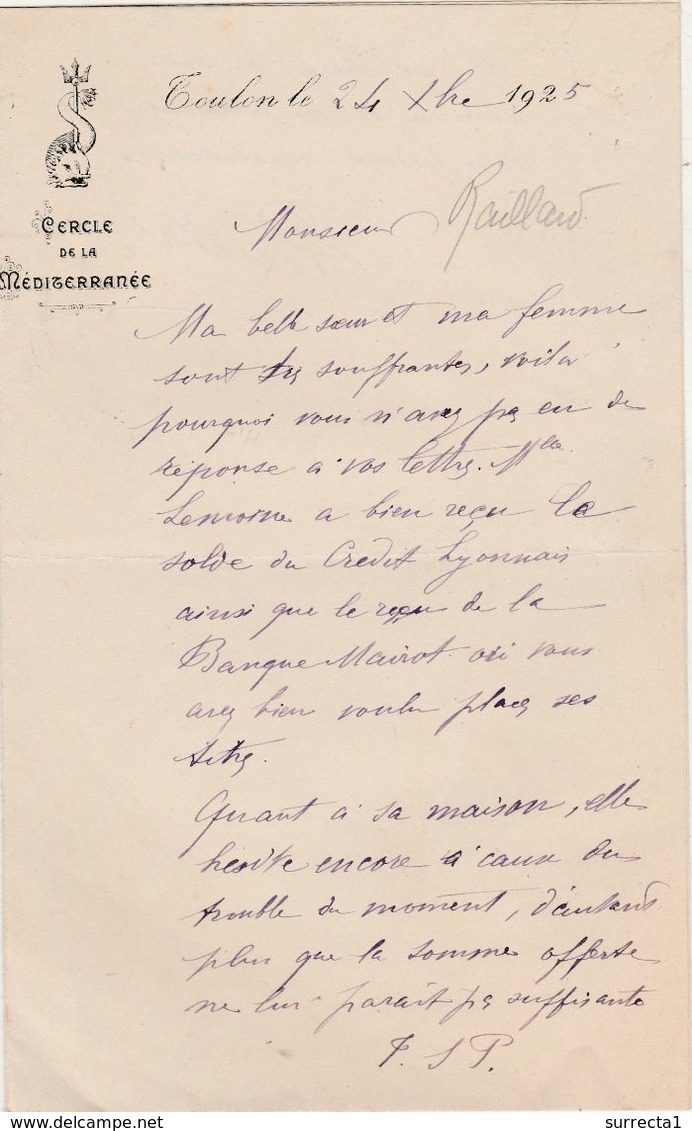 Toulon le 24 Xbre 1925
CERCLE
DE LA
MÉDITERRANÉE
Monsieur Raillard
Ma belle sœur et ma femme
sont très souffrantes, voilà
pourquoi vous n'avez pas eu de
réponse à vos lettres. Mlle
Lemoine a bien reçu le
solde du Crédit Lyonnais
ainsi que le reçu de la
Banque Mairot où vous
avez bien voulu placer ses
titres.
Quant à sa maison, elle
hésite encore à cause du
trouble du moment, d'autant
plus que la somme offerte
ne lui parait pas suffisante
T. S P.
surrecta1